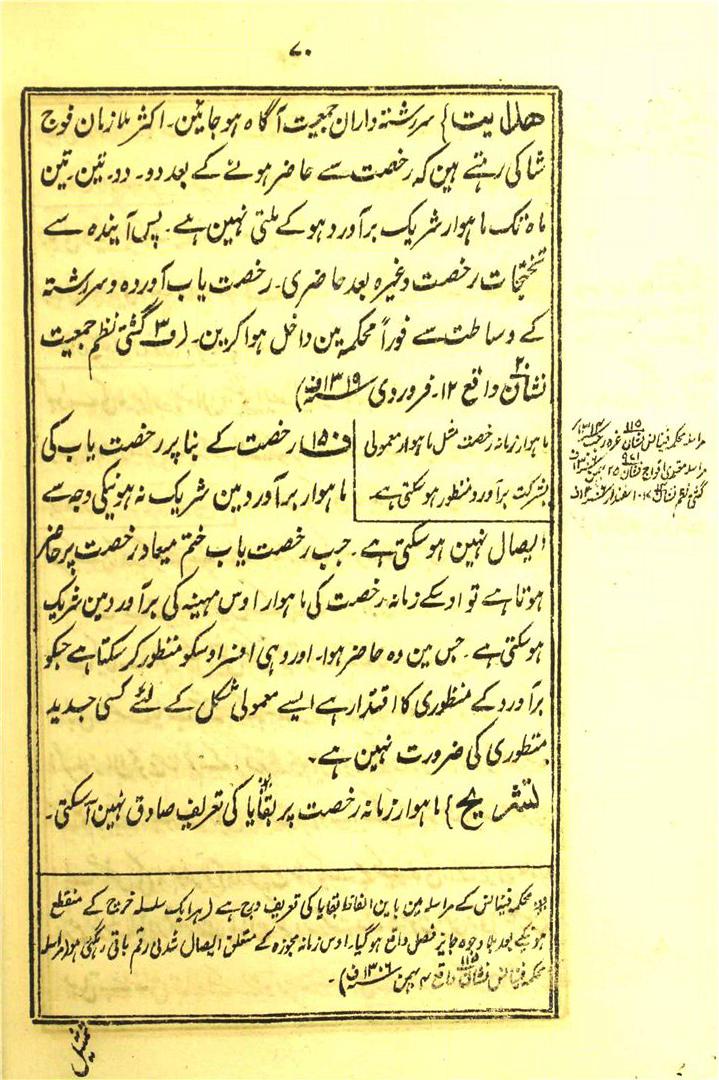 ۷۰
ھدایت} سررشتہ داران جمعیت آگاہ ہو جائین۔ اکثر ملازمان فوج
شاکی رہتے ہین کہ رخصت سے حاضر ہونے کے بعد دو۔ دو۔ تین۔ تین
ماہ تک ماہوار شریک برآورد ہو کے ملتی نہین ہے۔ پس آیندہ سے
تختجات رخصت وغیرہ بعد حاضری۔ رخصت یاب آوردہ و سررشتہ
کے وساطت سے فوراً محکمہ مین داخل ہوا کرین۔ (ف۳ گشتی نظم جمعیت
نشان ۲۰ واقع ۱۲۔ فروردی سنہ ۱۳۱۹ف)
ماہوار زمانہ رخصت مثل ماہوار معمولی
بشرکت برآورد منظور ہو سکتی ہے۔
ف۱۵۰ رخصت کے بنا پر رخصت یاب کی
ماہوار برآورد مین شریک نہ ہونیکی وجہ سے
ایصال نہین ہو سکتی ہے۔ جب رخصت یاب ختم میعاد رخصت پر حاضر
ہوتا ہے تو اوسکے زمانہ رخصت کی ماہوار اوس مہینہ کی برآورد مین شریک
ہو سکتی ہے۔ جس مین وہ حاضر ہوا۔ اور وہی افسر اوسکو منظور کر سکتا ہے جسکو
برآورد کے منظوری کا اقتدار ہے ایسے معمولی شکل کے لئے کسی جدید
منظوری کی ضرورت نہین ہے۔
تشریح} ماہوار زمانہ رخصت پر بقایا کی تعریف صادق نہین آسکتی۔
مراسلہ محکمہ فینانس نشان ۱۱۵ غرہ
مراسلہ معتمدی افواج نشان ۹۶۱ ۲۵ بہمن
گشتی نظم نشان ۱۰ اسفندار
محکمہ فینانس کے مراسلہ مین باین الفاظ بقایا کی تعریف درج ہے (ہر ایک سلسلہ خرچ کے منقطع
ہونیکے بعد بلا وجوہ جایز فصل واقع ہو گیا۔ اوس زمانہ مجوزہ کے متعلق ایصال شدنی رقم باقی رہگئی ہو (مراسلہ
محکمہ فینانس نشان ۱۱۵ واقع ۴ بہمن سنہ ۱۳۰۶ف)۔
تمثیل